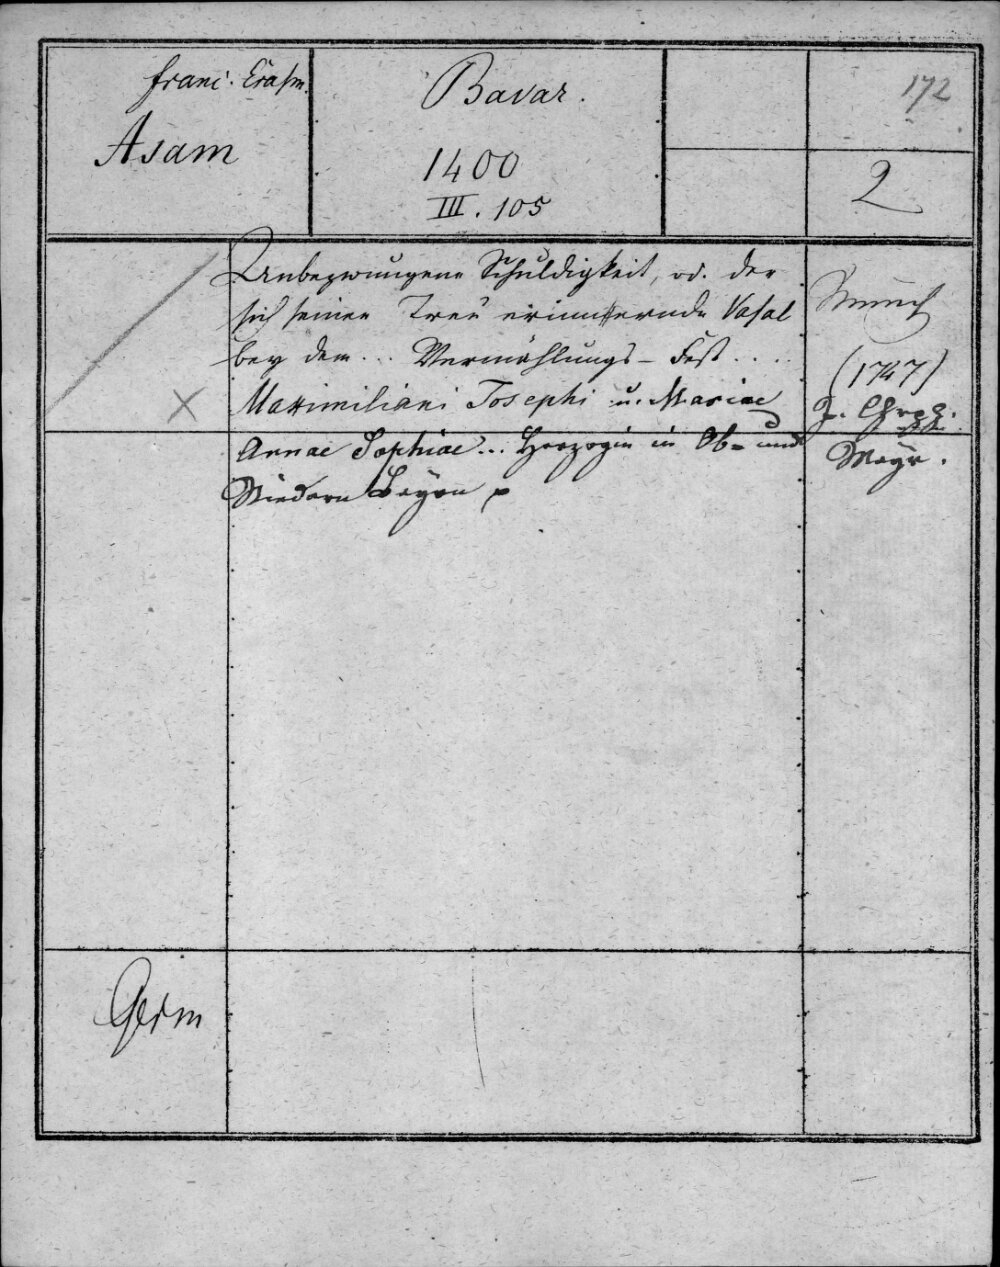 Franc. Erasm.
Asam
Bavar.
1400
III. 105
172
2
Unbezwungene Schuldigkeit, od. der
sich seiner Treu erinnernde Vasal
bey dem ... Vermählungs-Fest ...
Maximiliani Josephi u. Mariae
Annae Sophiae ... Herzogin in Ob- und
Niedern Bayrn
Münch
(1747)
J. Chrph.
Mayr.
Germ